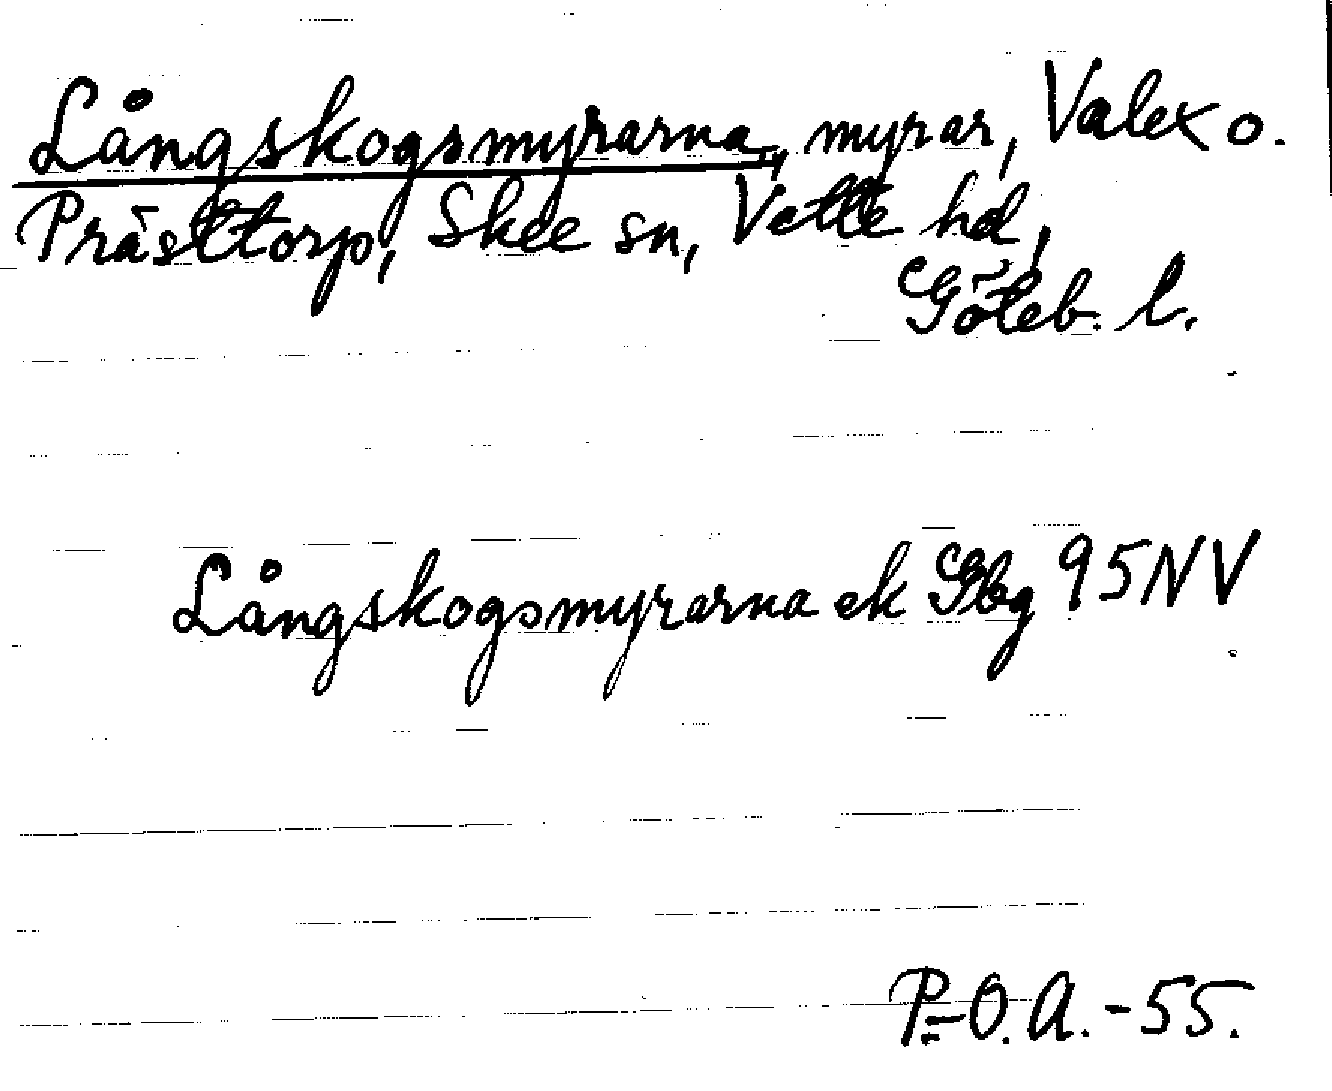 Långskogsmyrarna, myrar, Valex o.
Prästtorp, Skee sn, Vette hd,
Göteb. l.
Långskogsmyrarna ek Gbg 95NV
P-O.A.-55.